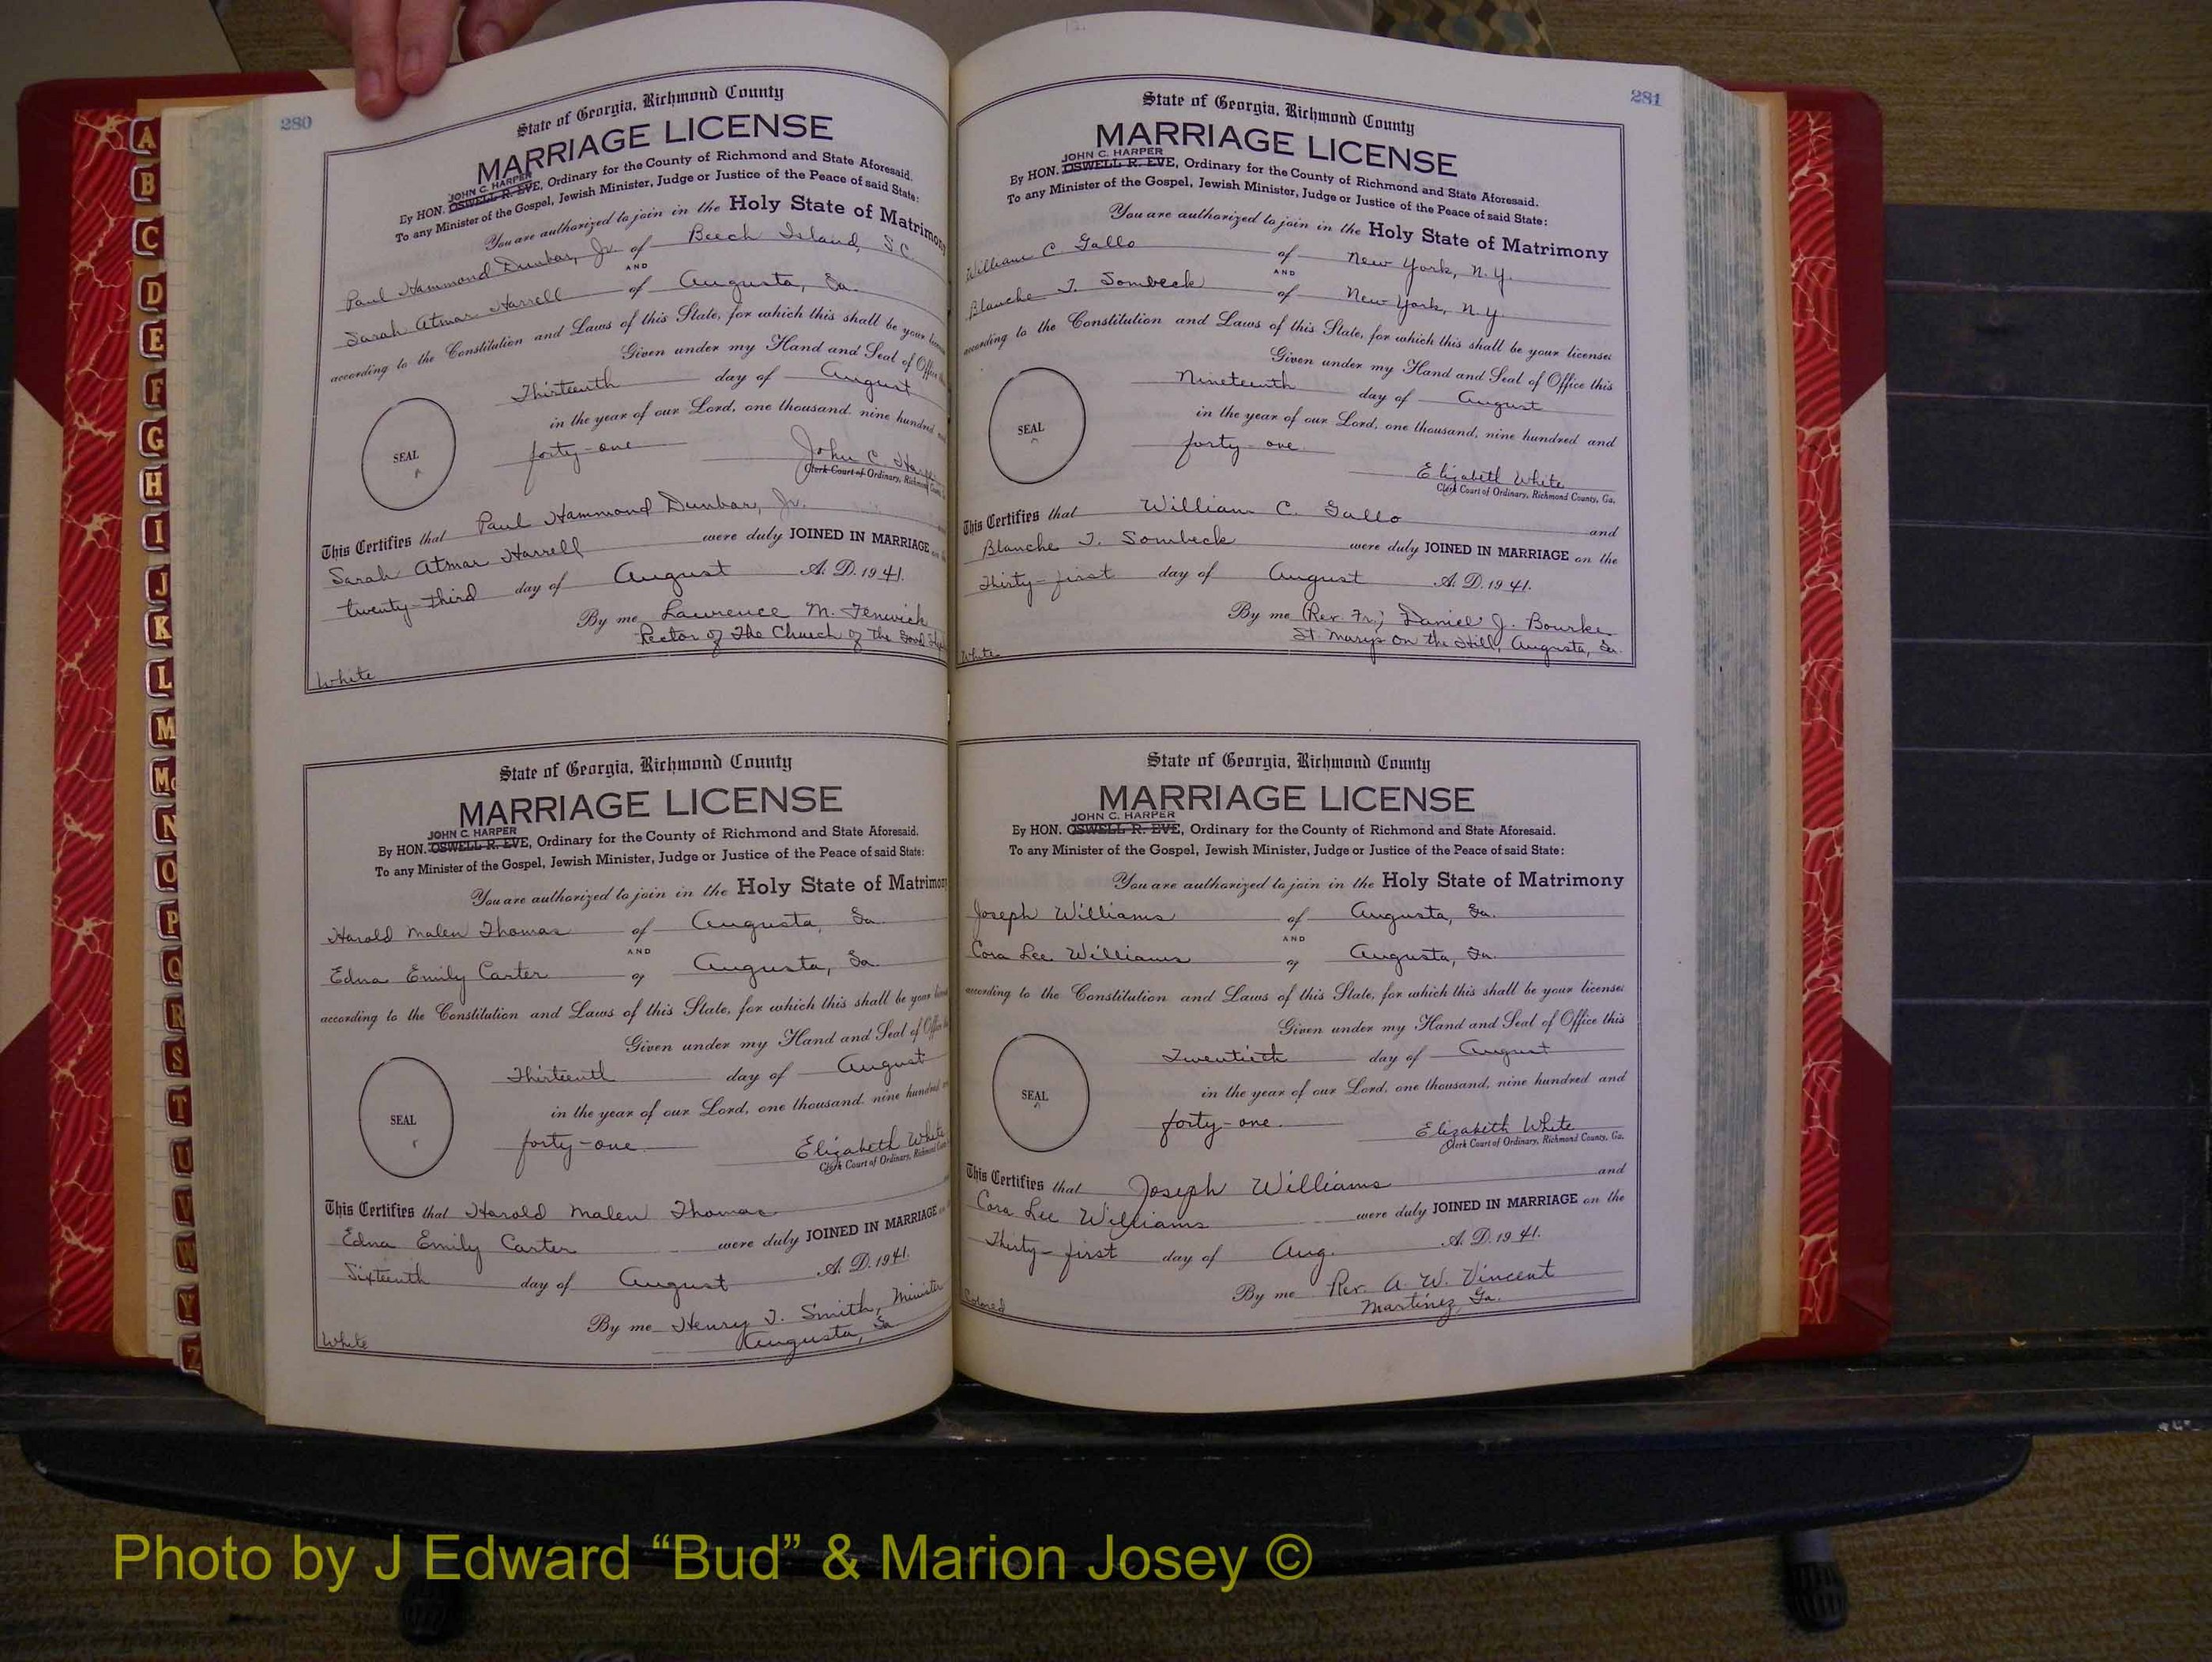 280
State of Georgia, Richmond County
MARRIAGE LICENSE
JOHN C. HARPER
By HON. OSWELL R. EVE, Ordinary for the County of Richmond and State Aforesaid.
To any Minister of the Gospel, Jewish Minister, Judge or Justice of the Peace of said State:
You are authorized to join in the Holy State of Matrimony
Paul Hammond Dunbar, Jr. of Beech Island, S.C.
AND
Sarah Atmar Harrell of Augusta, Ga.
according to the Constitution and Laws of this State, for which this shall be your
Given under my Hand and Seal of Office
Thirteenth day of August
in the year of our Lord, one thousand, nine hundred
forty-one
SEAL
John C. Harper
Clerk Court of Ordinary, Richmond
This Certifies that Paul Hammond Dunbar, Jr.
Sarah Atmar Harrell were duly JOINED IN MARRIAGE
twenty-third day of August A. D. 1941.
By me Lawrence M. Fenwick
Rector of The Church of The Good
White
State of Georgia, Richmond County
MARRIAGE LICENSE
JOHN C. HARPER
By HON. OSWELL R. EVE, Ordinary for the County of Richmond and State Aforesaid.
To any Minister of the Gospel, Jewish Minister, Judge or Justice of the Peace of said State:
You are authorized to join in the Holy State of Matrimony
Harold Malen Thomas of Augusta, Ga.
AND
Edna Emily Carter of Augusta, Ga.
according to the Constitution and Laws of this State, for which this shall be your
Given under my Hand and Seal of Office
Thirteenth day of August
in the year of our Lord, one thousand, nine hundred
SEAL
forty-one
Elizabeth White
Clerk Court of Ordinary, Richmond
This Certifies that Harold Malen Thomas
Edna Emily Carter were duly JOINED IN MARRIAGE
Sixteenth day of August A. D. 1941.
By me Henry J. Smith, Minister
Augusta, Ga
White
281
State of Georgia, Richmond County
MARRIAGE LICENSE
JOHN C. HARPER
By HON. OSWELL R. EVE, Ordinary for the County of Richmond and State Aforesaid.
To any Minister of the Gospel, Jewish Minister, Judge or Justice of the Peace of said State:
You are authorized to join in the Holy State of Matrimony
William C Gallo of New York, N.Y.
AND
Blanche J. Sombeck of New York, N.Y.
according to the Constitution and Laws of this State, for which this shall be your license:
Given under my Hand and Seal of Office this
Nineteenth day of August
in the year of our Lord, one thousand, nine hundred and
SEAL
forty-one
Elizabeth White
Clerk Court of Ordinary, Richmond County, Ga.
This Certifies that William C. Gallo and
Blanche J. Sombeck were duly JOINED IN MARRIAGE on the
Thirty-first day of August A. D. 1941.
By me (Rev. Fr.) Daniel J. Bourke
St. Marys on the Hill, Augusta, Ga.
White
State of Georgia, Richmond County
MARRIAGE LICENSE
JOHN C. HARPER
By HON. OSWELL R. EVE, Ordinary for the County of Richmond and State Aforesaid.
To any Minister of the Gospel, Jewish Minister, Judge or Justice of the Peace of said State:
You are authorized to join in the Holy State of Matrimony
Joseph Williams of Augusta, Ga.
AND
Cora Lee Williams of Augusta, Ga.
according to the Constitution and Laws of this State, for which this shall be your license:
Given under my Hand and Seal of Office this
Twentieth day of August
in the year of our Lord, one thousand, nine hundred and
SEAL
forty-one.
Elizabeth White
Clerk Court of Ordinary, Richmond County, Ga.
This Certifies that Joseph Williams and
Cora Lee Williams were duly JOINED IN MARRIAGE on the
Thirty-first day of Aug. A. D. 1941.
By me Rev. A. W. Vincent
Martinez, Ga.
Colored
A
B
C
D
E
F
G
H
I
J
K
L
M
Mc
N
O
P
Q
R
S
T
U
V
W
Y
Z
Photo by J Edward “Bud” & Marion Josey ©